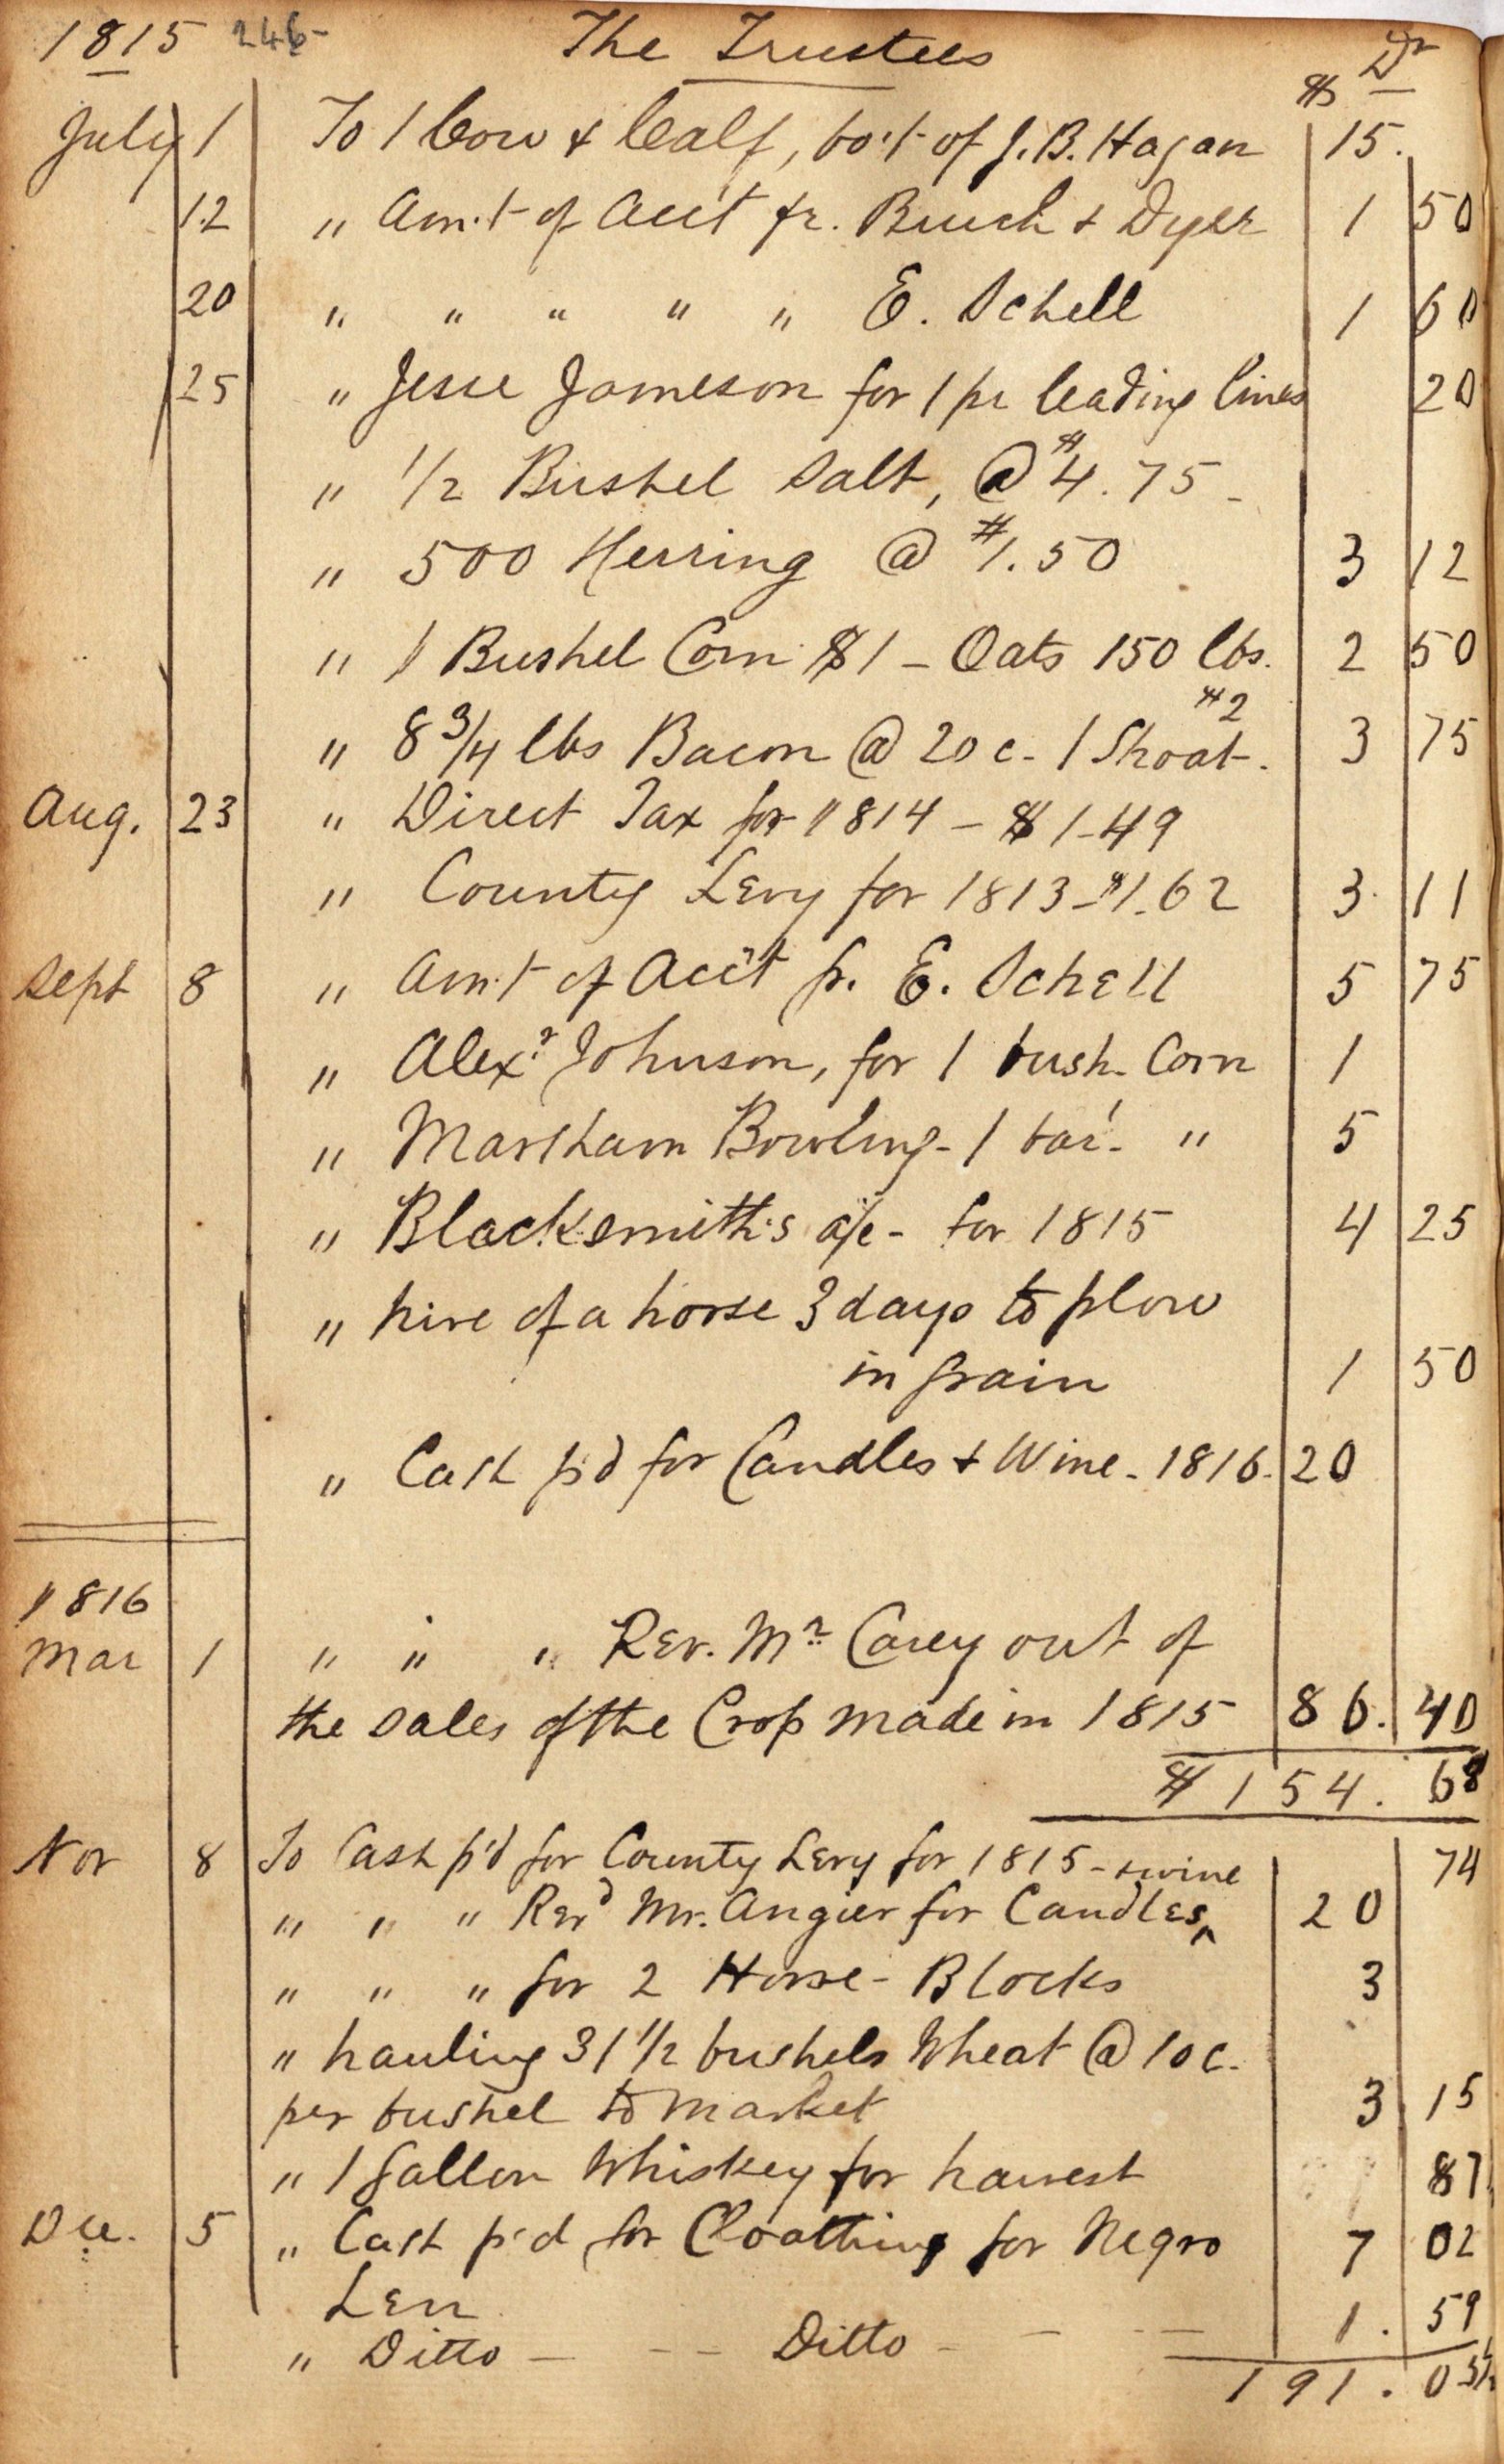 1815 246- The Trustees Dr
$
July 1 To 1 Cow & Calf, bo't of J.B. Hagan 15.
12 " Am't of Acc't fr. Burch & Dyer 1 50
20 " " " " " E. Schell 1 60
25 " Jesse Jameson for 1 pr leading lines 20
" 1/2 Bushel Salt, @ $4.75 -
" 500 Herring @ $1.50 3 12
" 1 Bushel Corn $1 - Oats 150 lbs. 2 50
" 8 3/4 lbs Bacon @ 20 c - 1 Shoat $2. 3 75
Aug. 23 " Direct Tax for 1814 - $1-49
" County Levy for 1813 - $1.62 3. 11
Sept 8 " Am't of Acc't fr. E. Schell 5 75
" Alexr. Johnson, for 1 bush. Corn 1
" Marsham Bowling - 1 bar'. " 5
" Blacksmith's a/c - for 1815 4 25
" hire of a horse 3 days to plow
in grain 1 50
" Cash p'd for Candles & Wine - 1816. 20
1816
Mar 1 " " " Rev. Mr. Carey out of
the sales of the Crop made in 1815 86. 40
$154. 68
Nov 8 To Cash p'd for County Levy for 1815 - 74
" " " Revd Mr. Angier for Candles ^ & wine 20
" " " for 2 Horse-Blocks 3
" hauling 31 1/2 bushels Wheat @ 10 c.
per bushel to market 3 15
" 1 Gallon Whiskey for harvest 87
Dec. 5 " Cash p'd for Cloathing for Negro 7 02
Len
" Ditto - - - Ditto - - - 1. 59
191. 05 1/2